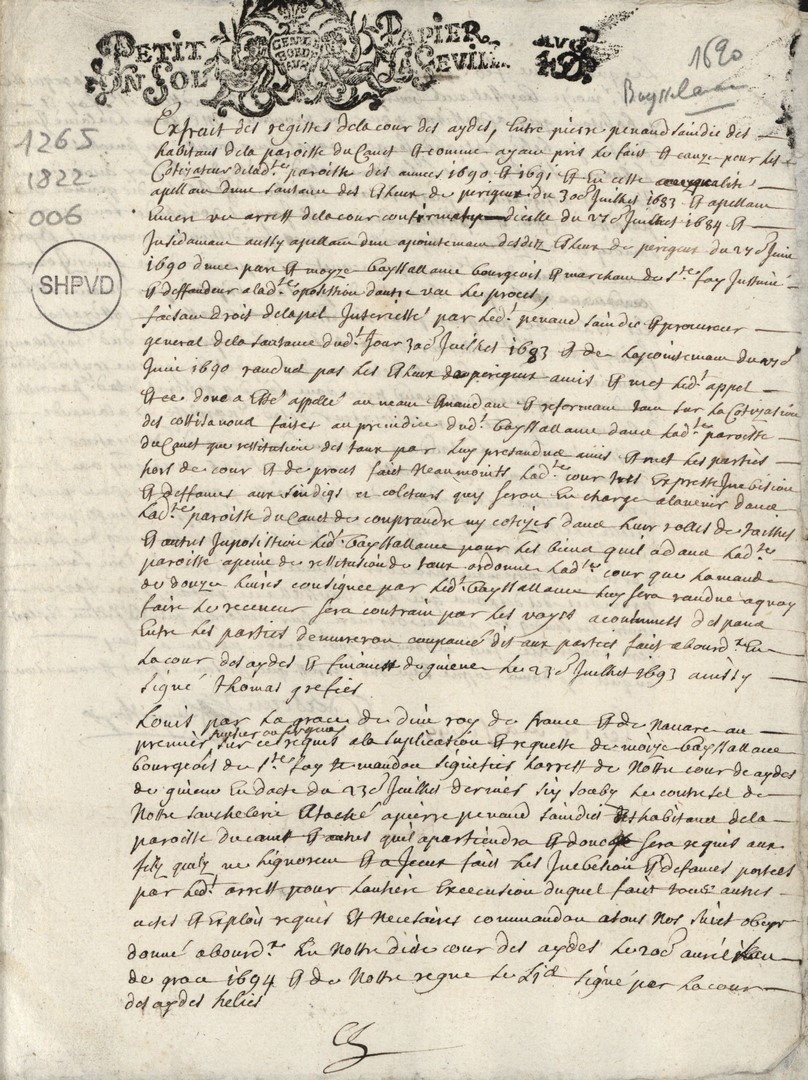 PETIT PAPIER
UN SOL LA FEUILLE
GENER BORDEAUX
1690
Bayssalance
1265
1822-
006
SHPVD
Extrait des registes dela cour des aydes, Entre pierre penaud saindic des
habitans dela paroisse du Canet Et comme ayam pris le fait Et cauze pour les
Cotizateurs de lad.te paroisse des annees 1690 Et 1691 Et En cette qualité
apellam dune santance des Esleux de perigeux du 30e Juilhet 1683 Et apellam
Envers un arrest dela cour confirmatif dicelle du 27e Juilhet 1684 Et
Insidamam aussy apellam dun apointemam desditz Esleux de perigeux du 27e Juin
1690 dune par Et moyze bayssallance bourgeois Et marcham de s.te foy Inthimé
Et deffandeur a lad.te oposition dautre veu le proces,
faisam droit delapel Interietté par led.t penaud saindic Et procureur
general dela santance dud.t Jour 30e Juilhet 1683 Et de lapointemam du 27e
Juin 1690 randue pas les Esleux de perigeux a mis Et met led.t appel
Et ce donc a Esté appellé au neam Emandam Et reformam tam sur la Cotization
des cottisa noud faites au preiudice dud.t bayssallance dans lad.te paroisse
du Canet que restitution des taux par luy pretandue a mis Et met les parties
hors de cour Et de proces fait neammoints lad.te cour tres Expresse Inebision
Et deffances aux sindigs et coleteurs quy serou En charge alavenir dans
lad.te paroisse du Canet de comprandre ny cotizer dans leur rolles de tailhes
Et autres Inposittion led.t bayssallance pour les biens quil a dans lad.te
paroisse apeine de restitution de taux ordonne lad.te cour que lamande
de douze liures consignée par led.t bayssallance luy sera randue aquoy
faire le receueur sera contrain par les voyes acoutumees despans
Entre les parties demureron conpancé dit aux parties fait abourd.x En
la cour des aydes Et finances de guiene le 23e Juilhet 1693 ainsy
signé Thomas grefier
Louis par la grace de dieu roy de france Et de Nauare au
premier huissier ou sergent sur ce requis ala suplication Et requette de moize bayssallance
bourgeois de s.te foy te mandon signifies larrest de Nottre cour de aydes
de guiene En datte du 23e Juilhet dernier sy soubz le contresel de
Nottre chancelerie atache a pierre penaud saindic des habitans dela
paroisse du canet Et autres quil apartiendra Et donc sera requis aux
fin qualz ne lignoreun Et a Jceux fait les Inebition Et defances portees
par led.t arrest pour lantiere Execcusion duquel fait tous autres
actes Et Explois requis Et Necesaires commandon a tous Nos suiet obeyr
donné abourd.x En Nottre dicte cour des aydes le 20e auril lan
de grace 1694 Et de Nottre regne le signé par la cour
des aydes helies